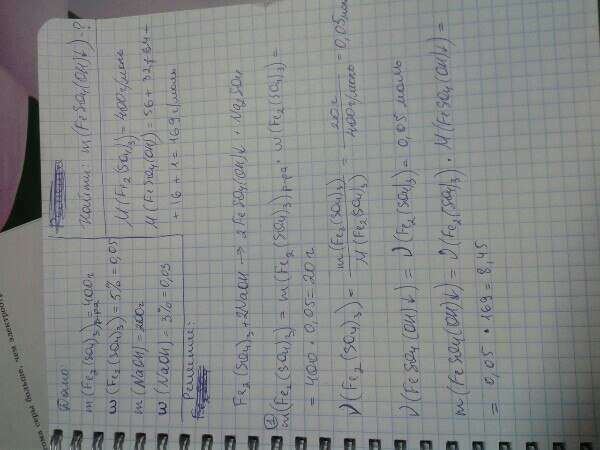 Дано
m(Fe2(SO4)3)р-ра = 400г
ω(Fe2(SO4)3) = 5% = 0,05
m(NaOH) = 200г
ω(NaOH) = 3% = 0,03
Найти: m(FeSO4(OH)↓) - ?
M(Fe2(SO4)3) = 400г/моль
M(FeSO4(OH)) = 56 + 32 + 64 +
+ 16 + 1 = 169г/моль
Решение:
Fe2(SO4)3 + 2NaOH → 2FeSO4(OH)↓ + Na2SO4
m(Fe2(SO4)3) = m(Fe2(SO4)3)р-ра · ω(Fe2(SO4)3) =
= 400 · 0,05 = 20г
ν(Fe2(SO4)3) = m(Fe2(SO4)3) / M(Fe2(SO4)3) = 20г / 400г/моль = 0,05моль
ν(FeSO4(OH)↓) = ν(Fe2(SO4)3) = 0,05 моль
m(FeSO4(OH)↓) = ν(Fe2(SO4)3) · M(FeSO4(OH)↓) =
= 0,05 · 169 = 8,45
серы больше, чем электроот